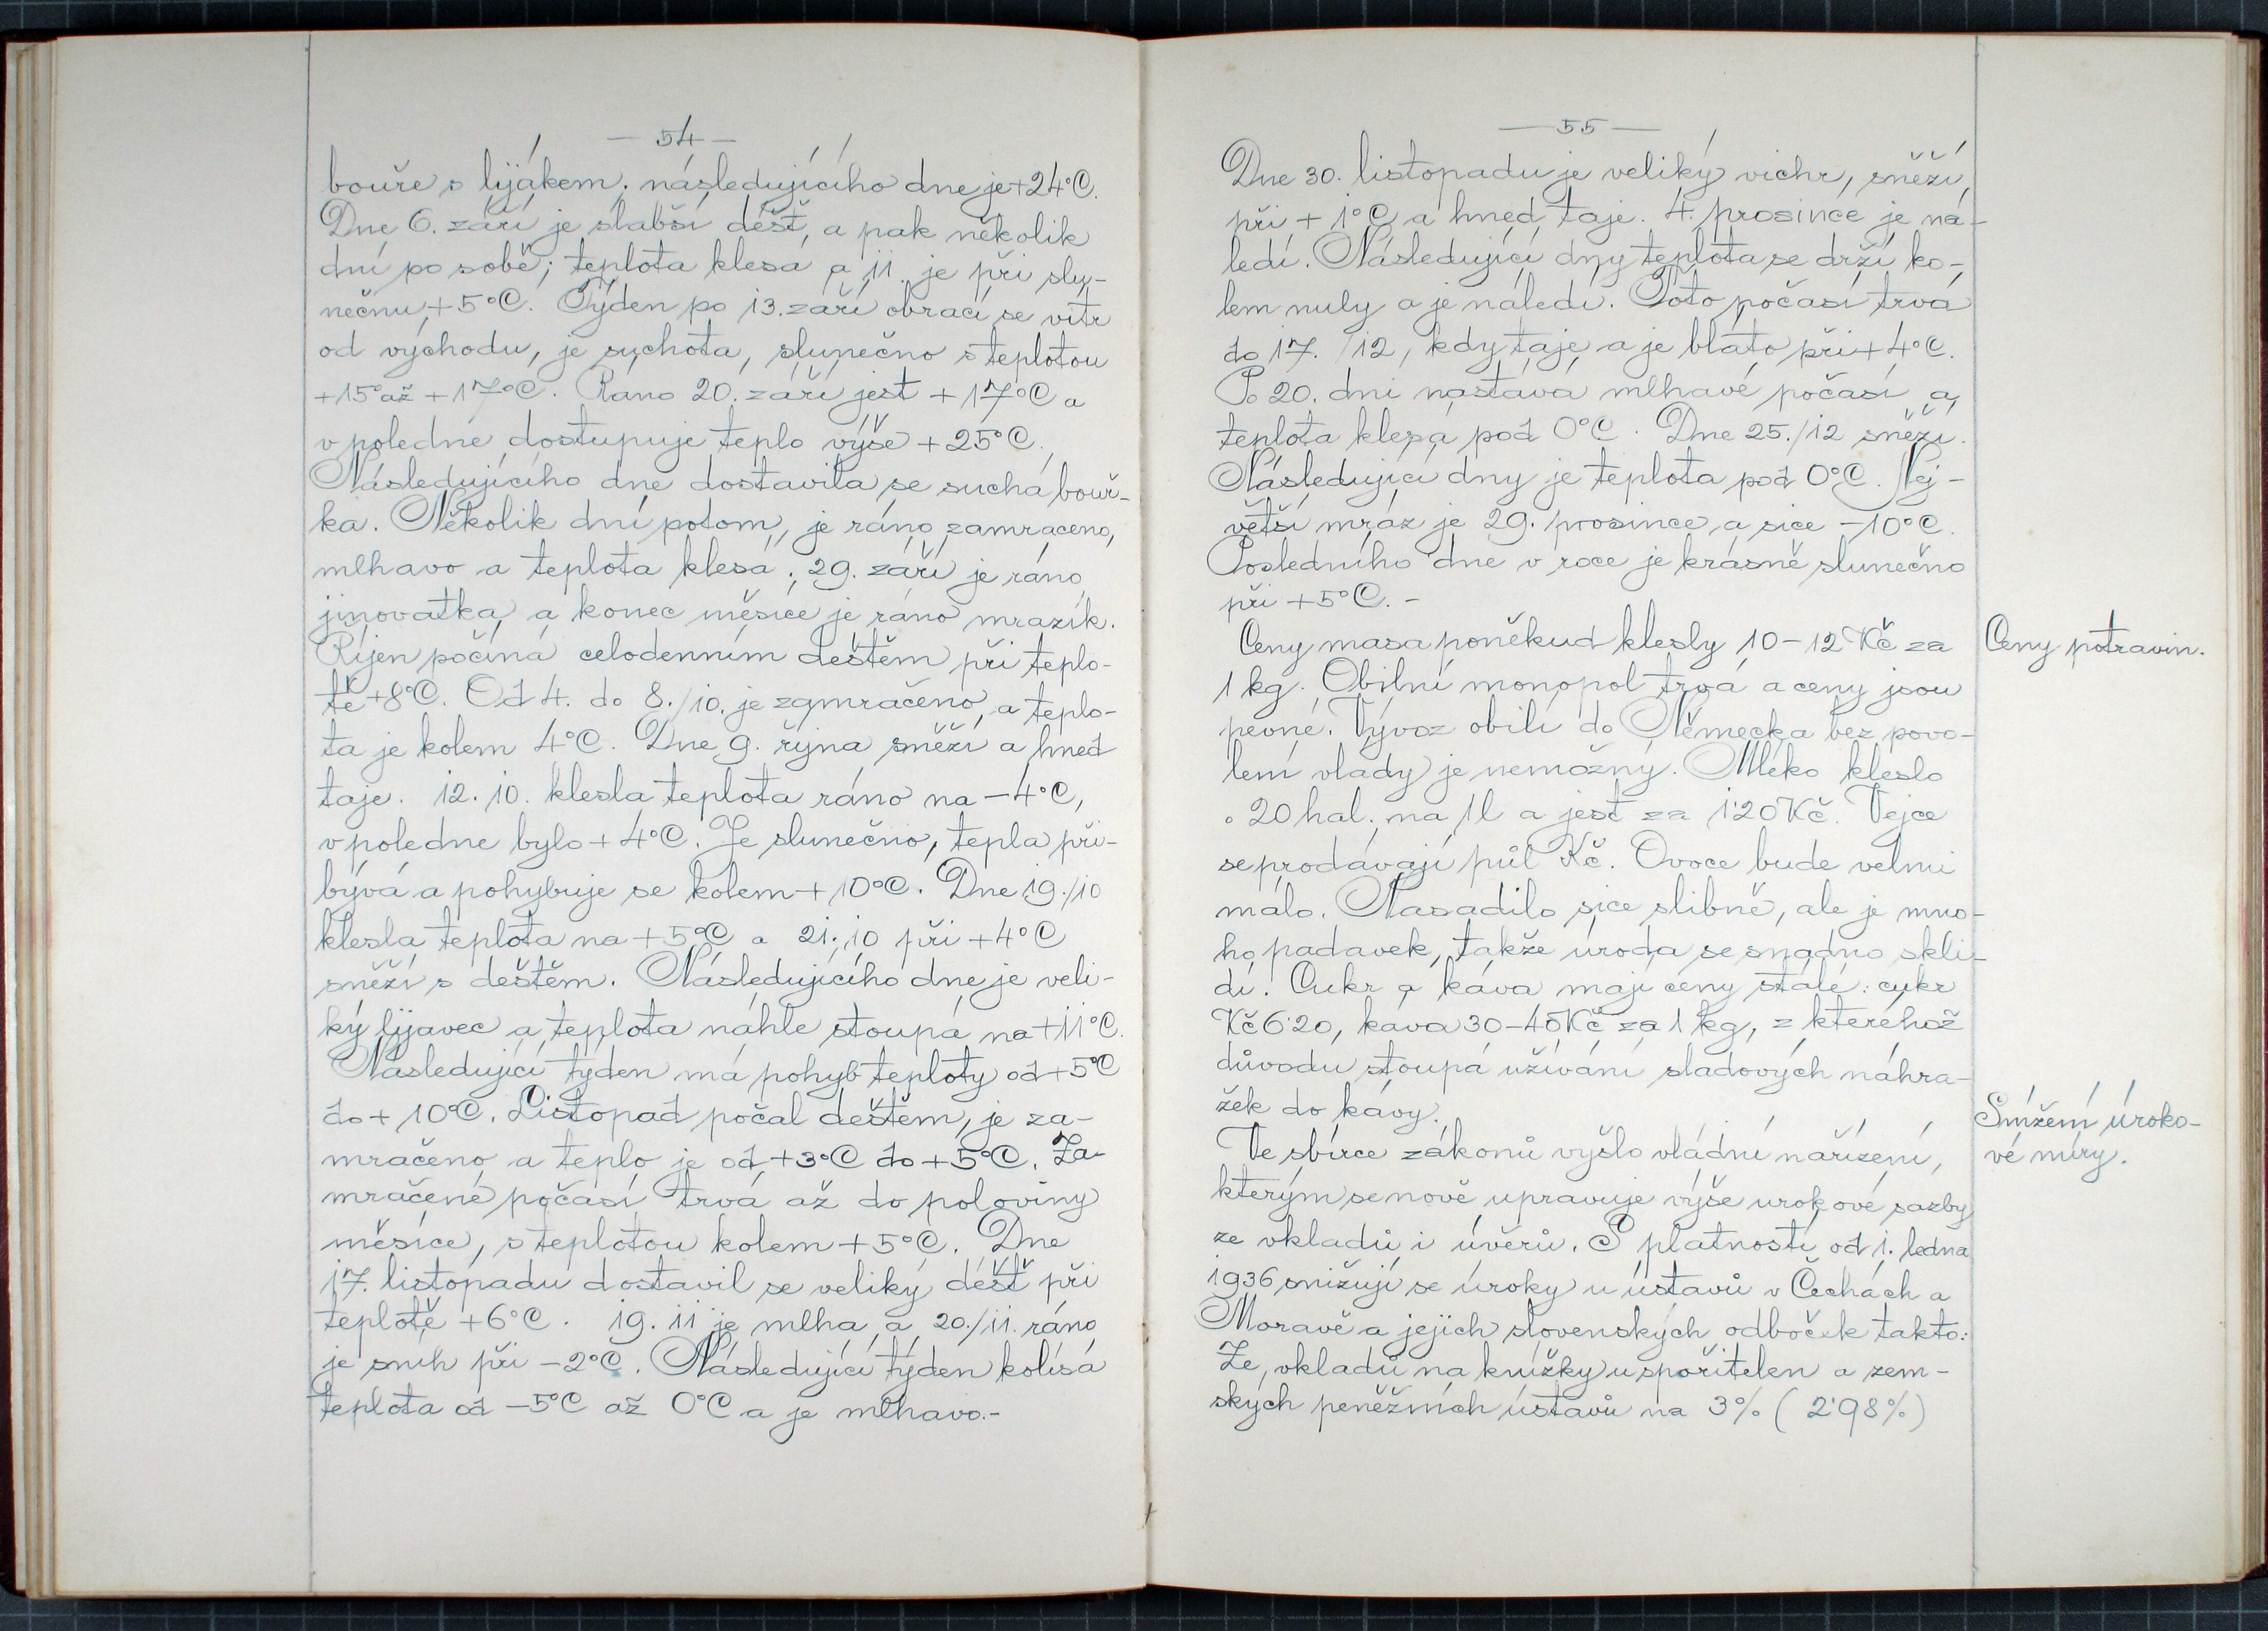 — 54 —
bouře s lijákem, následujícího dne je +24°C.
Dne 6. září je slabší déšť, a pak několik
dní po sobě; teplota klesá a 11. je při slu-
nečnu +5°C. Týden po 13. září obrací se vítr
od východu, je suchota, slunečno s teplotou
+15° až +17°C. Ráno 20. září jest +17°C a
v poledne dostupuje teplo výše +25°C.
Následujícího dne dostavila se suchá bouř-
ka. Několik dní potom, je ráno zamračeno,
mlhavo a teplota klesá; 29. září je ráno
jinovatka, a konec měsíce je ráno mrazík.
Říjen počíná celodenním deštěm při teplo-
tě +8°C. Od 4. do 8./10. je zamračeno, a teplo-
ta je kolem 4°C. Dne 9. října sněží a hned
taje. 12. 10. klesla teplota ráno na -4°C,
v poledne bylo +4°C. Je slunečno, tepla při-
bývá a pohybuje se kolem +10°C. Dne 19./10
klesla teplota na +5°C a 21. 10 při +4°C
sněží s deštěm. Následujícího dne je veli-
ký lijavec a teplota náhle stoupá na +11°C.
Následující týden má pohyb teploty od +5°C
do +10°C. Listopad počal deštěm, je za-
mračeno a teplo je od +3°C do +5°C. Za-
mračené počasí trvá až do poloviny
měsíce, s teplotou kolem +5°C. Dne
17. listopadu dostavil se veliký déšť při
teplotě +6°C. 19. 11 je mlha a 20./11. ráno
je sníh při -2°C. Následující týden kolísá
teplota od -5°C až 0°C a je mlhavo.-
— 55 —
Dne 30. listopadu je veliký vichr, sněží,
při +1°C a hned taje. 4. prosince je ná-
ledí. Následující dny teplota se drží ko-
lem nuly a je náledí. Toto počasí trvá
do 17. /12, kdy taje a je bláto při +4°C.
Po 20. dni nastává mlhavé počasí a
teplota klesa pod 0°C. Dne 25./12 sněží.
Následující dny je teplota pod 0°C. Nej-
větší mráz je 29. prosince, a sice -10°C.
Posledního dne v roce je krásně slunečno
při +5°C. -
Ceny masa poněkud klesly 10-12 Kč za
1 kg. Obilní monopol trvá a ceny jsou
pevné. Vývoz obilí do Německa bez povo-
lení vlády je nemožný. Mléko kleslo
o 20 hal. na 1l a jest za 1'20 Kč. Vejce
se prodávají půl Kč. Ovoce bude velmi
málo. Nasadilo sice slibně, ale je mno-
ho padavek, takže úroda se snadno skli-
dí. Cukr a káva mají ceny stálé: cukr
Kč 6'20, káva 30-40 Kč za 1 kg, z kteréhož
důvodu stoupá užívání sladových náhra-
žek do kávy.
Ve sbírce zákonů vyšlo vládní nařízení,
kterým se nově upravuje výše urokové sazby
ze vkladů i úvěrů. S platností od 1. ledna
1936 snižují se úroky u ústavů v Čechách a
Moravě a jejich slovenských odboček takto:
Ze vkladů na knížky u spořitelen a zem-
ských peněžních ústavů na 3% (2'98%)
Ceny potravin.
Snížení úroko-
vé míry.